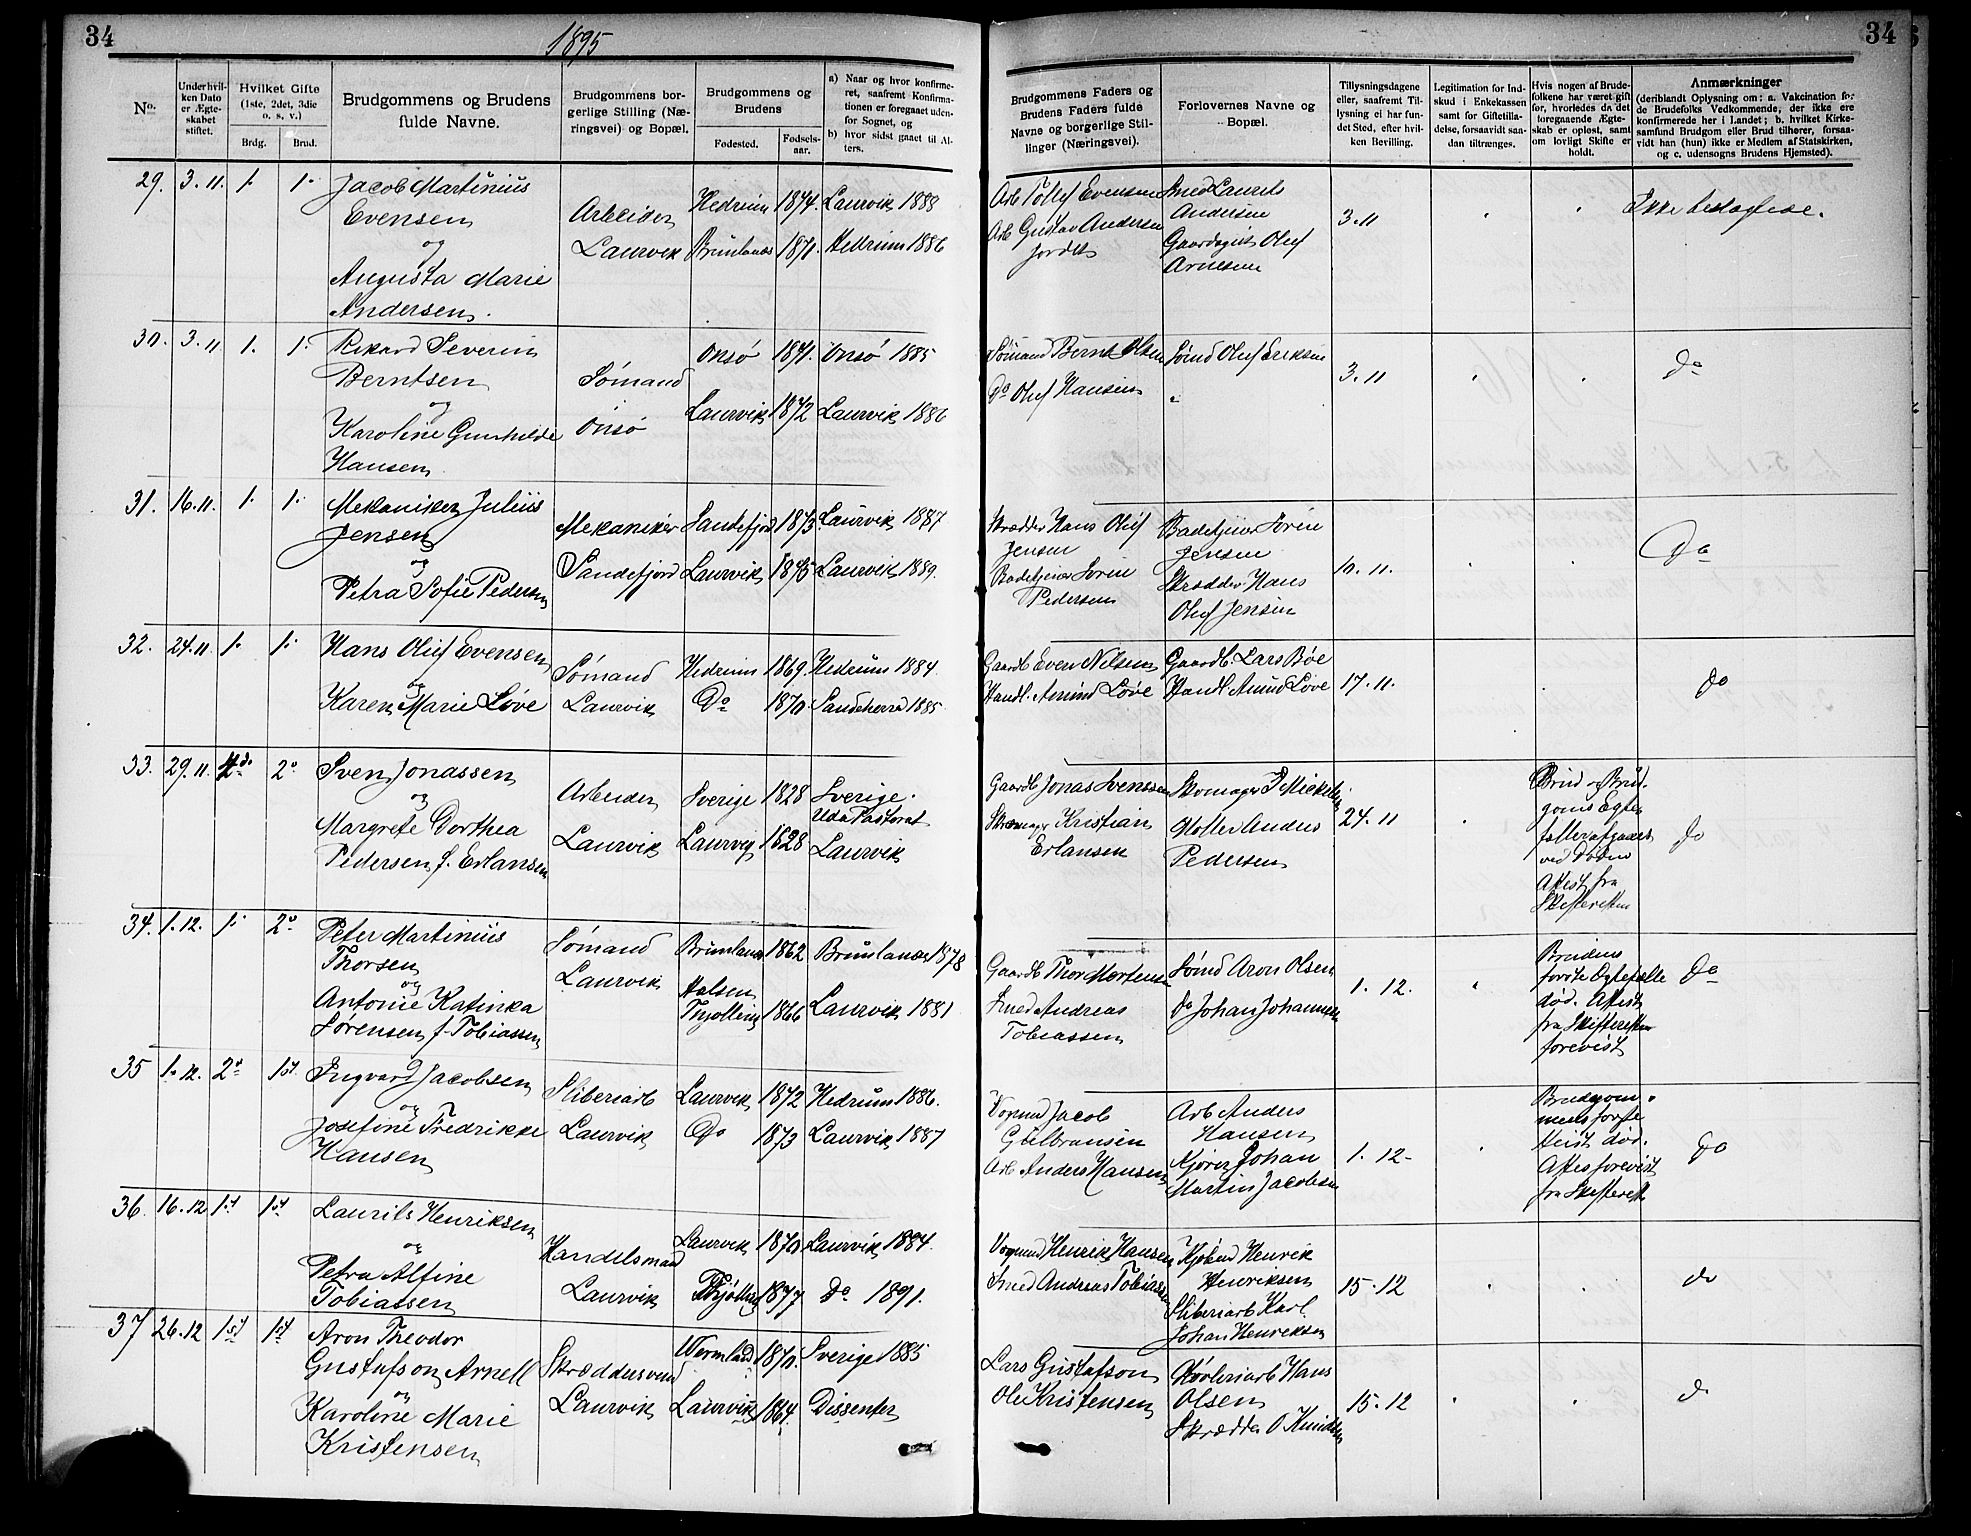 34
1895
No.
Under hvil-
ken Dato
er Ægte-
skabet
stiftet.
Hvilket Gifte
(1ste, 2det, 3die
o. s. v.)
Brdg.
Brud.
Brudgommens og Brudens
fulde Navne.
Brudgommens bor-
gerlige Stilling (Næ-
ringsvei) og Bopæl.
Brudgommens og
Brudens
Fødested.
Fødsels-
aar.
a) Naar og hvor konfirme-
ret, saafremt Konfirma-
tionen er foregaaet uden-
for Sognet, og
b) hvor sidst gaaet til Al-
ters.
29. 3.11. 1. 1.
Jacob Martinius
Evensen
og
Augusta Marie
Andersen.
Arbeider
Laurvik
Hedrum 1874. Laurvik 1889
Brunlanæs 1871. Hedrum 1886
30. 3.11 1. 1.
Rikard Severin
Berntsen
og
Karoline Gunhilde
Hansen
Sømand
Onsø
Onsø 1871. Onsø 1885
Laurvik 1872 Laurvik 1886
31. 16.11. 1. 1.
Mekaniker Julius
Jensen
og
Petra Sofie Pedersen
Mekaniker
Sandefjord
Sandefjord 1873 Laurvik 1887
Laurvik 1875 Laurvik 1889.
32. 24.11 1. 1.
Hans Oluf Evensen
og
Karen Marie Løve
Sømand
Laurvik
Hedrum 1869. Hedrum 1884
Do 1870. Sandeherred 1885
33. 29.11. 2d 2d
Sven Jonassen
og
Margrete Dorthea
Pedersen f. Erlansen
Arbeider
Laurvik
Sverige 1828 Sverige.
Uda Pastorat
Laurvig 1828 Laurvik
34. 1.12. 1. 2d
Peter Martinius
Thorsen
og
Antonie Katinka
Sørensen f. Tobiassen
Sømand
Laurvik
Brunlanæs 1862 Brunlanæs 1878
Halsen
Thjølling 1866 Laurvik 1881
35 1.12. 2d 1st.
Ingvard Jacobsen
og
Josefine Fredrikke
Hansen
Sliberiarb
Laurvik
Laurvik 1872 Hedrum 1886.
Do 1873 Laurvik 1887
36. 16.12 1st 1st
Laurits Henriksen
og
Petra Alfine
Tobiassen
Handelsmand
Laurvik
Laurvik 1870 Laurvik 1884.
Thjølling 1877 Do 1891.
37 26.12 1st 1st
Aron Theodor
Gustafson Arnell
og
Karoline Marie
Kristensen
Skræddersvend
Laurvik
Wermland 1870. Sverige 1885
Laurvik 1864. Dissenter
34
Brudgommens Faders og
Brudens Faders fulde
Navne og borgerlige Stil-
linger (Næringsvei).
Forlovernes Navne og
Bopæl.
Tillysningsdagene
eller, saafremt Til-
lysning ei har fun-
det Sted, efter hvil-
ken Bevilling.
Legitimation for Ind-
skud i Enkekassen
samt for Giftetilla-
delse, forsaavidt saa-
dan tiltrænges.
Hvis nogen af Brude-
folkene har været gift
før, hvorledes da det
foregaaende Ægte-
skab er opløst, samt
om lovligt Skifte er
holdt.
Anmærkninger
(deriblandt Oplysning om: a. Vakcination for
de Brudefolks Vedkommende, der ikke ere
konfirmerede her i Landet; b. hvilket Kirke-
samfund Brudgom eller Brud tilhører, forsaa-
vidt han (hun) ikke er Medlem af Statskirken,
og c. udensogns Brudens Hjemsted).
Arb Tollef Evensen
Arb Gustav Andersen
Jordet
Smed Laurits
Andersen
Gaardsgut Oluf
Arnesen
3.11
Ikke beslægtede.
Sømand Bernt Olsen
Do Oluf Hansen
Sømd Oluf Eriksen
3.11
do
Skrædder Hans Oluf
Jensen
Badetjener Søren
Pedersen
Badetjener Søren
Jensen
Skrædder Hans
Oluf Jensen
10.11.
Do
Gaardb Even Nilsen
Handl. Amund Løve
Gaardb. Lars Bøe
Handl. Amund Løve
17.11.
do
Gaardb Jonas Svensen
Skomager Kristian
Erlansen
Skomager P Mickelsen
Møller Anders
Pedersen
24.11
Brud og Brud-
goms Egte
fæller afgaaet
ved Døden
Attest fra
Skifteretten
do
Gaardb Thor Mortensen
Smed Andreas
Tobiassen
Sømd Aron Olsen
do Johan Johannesen
1.12.
Brudens
første Egtefælle
død. Attest
fra Skifteretten
forevist
do
Vognmd Jacob
Gulbransen
Arb Anders Hansen
Arb Anders
Hansen
Kjører Johan
Martin Jacobsen
1.12-
Brudgom-
mens første
død.
Attest forevist
fra Skifterett
do
Vognmd Henrik Hansen
Smed Andreas Tobiassen
Kjøbmd Henrik
Henriksen
Sliberiarb Karl
Johan Henriksen
15.12
do
Lars Gustafson
Ole Kristensen
Høvleriarb Hans
Olsen
Skrædder O Knudsen
15.12
do